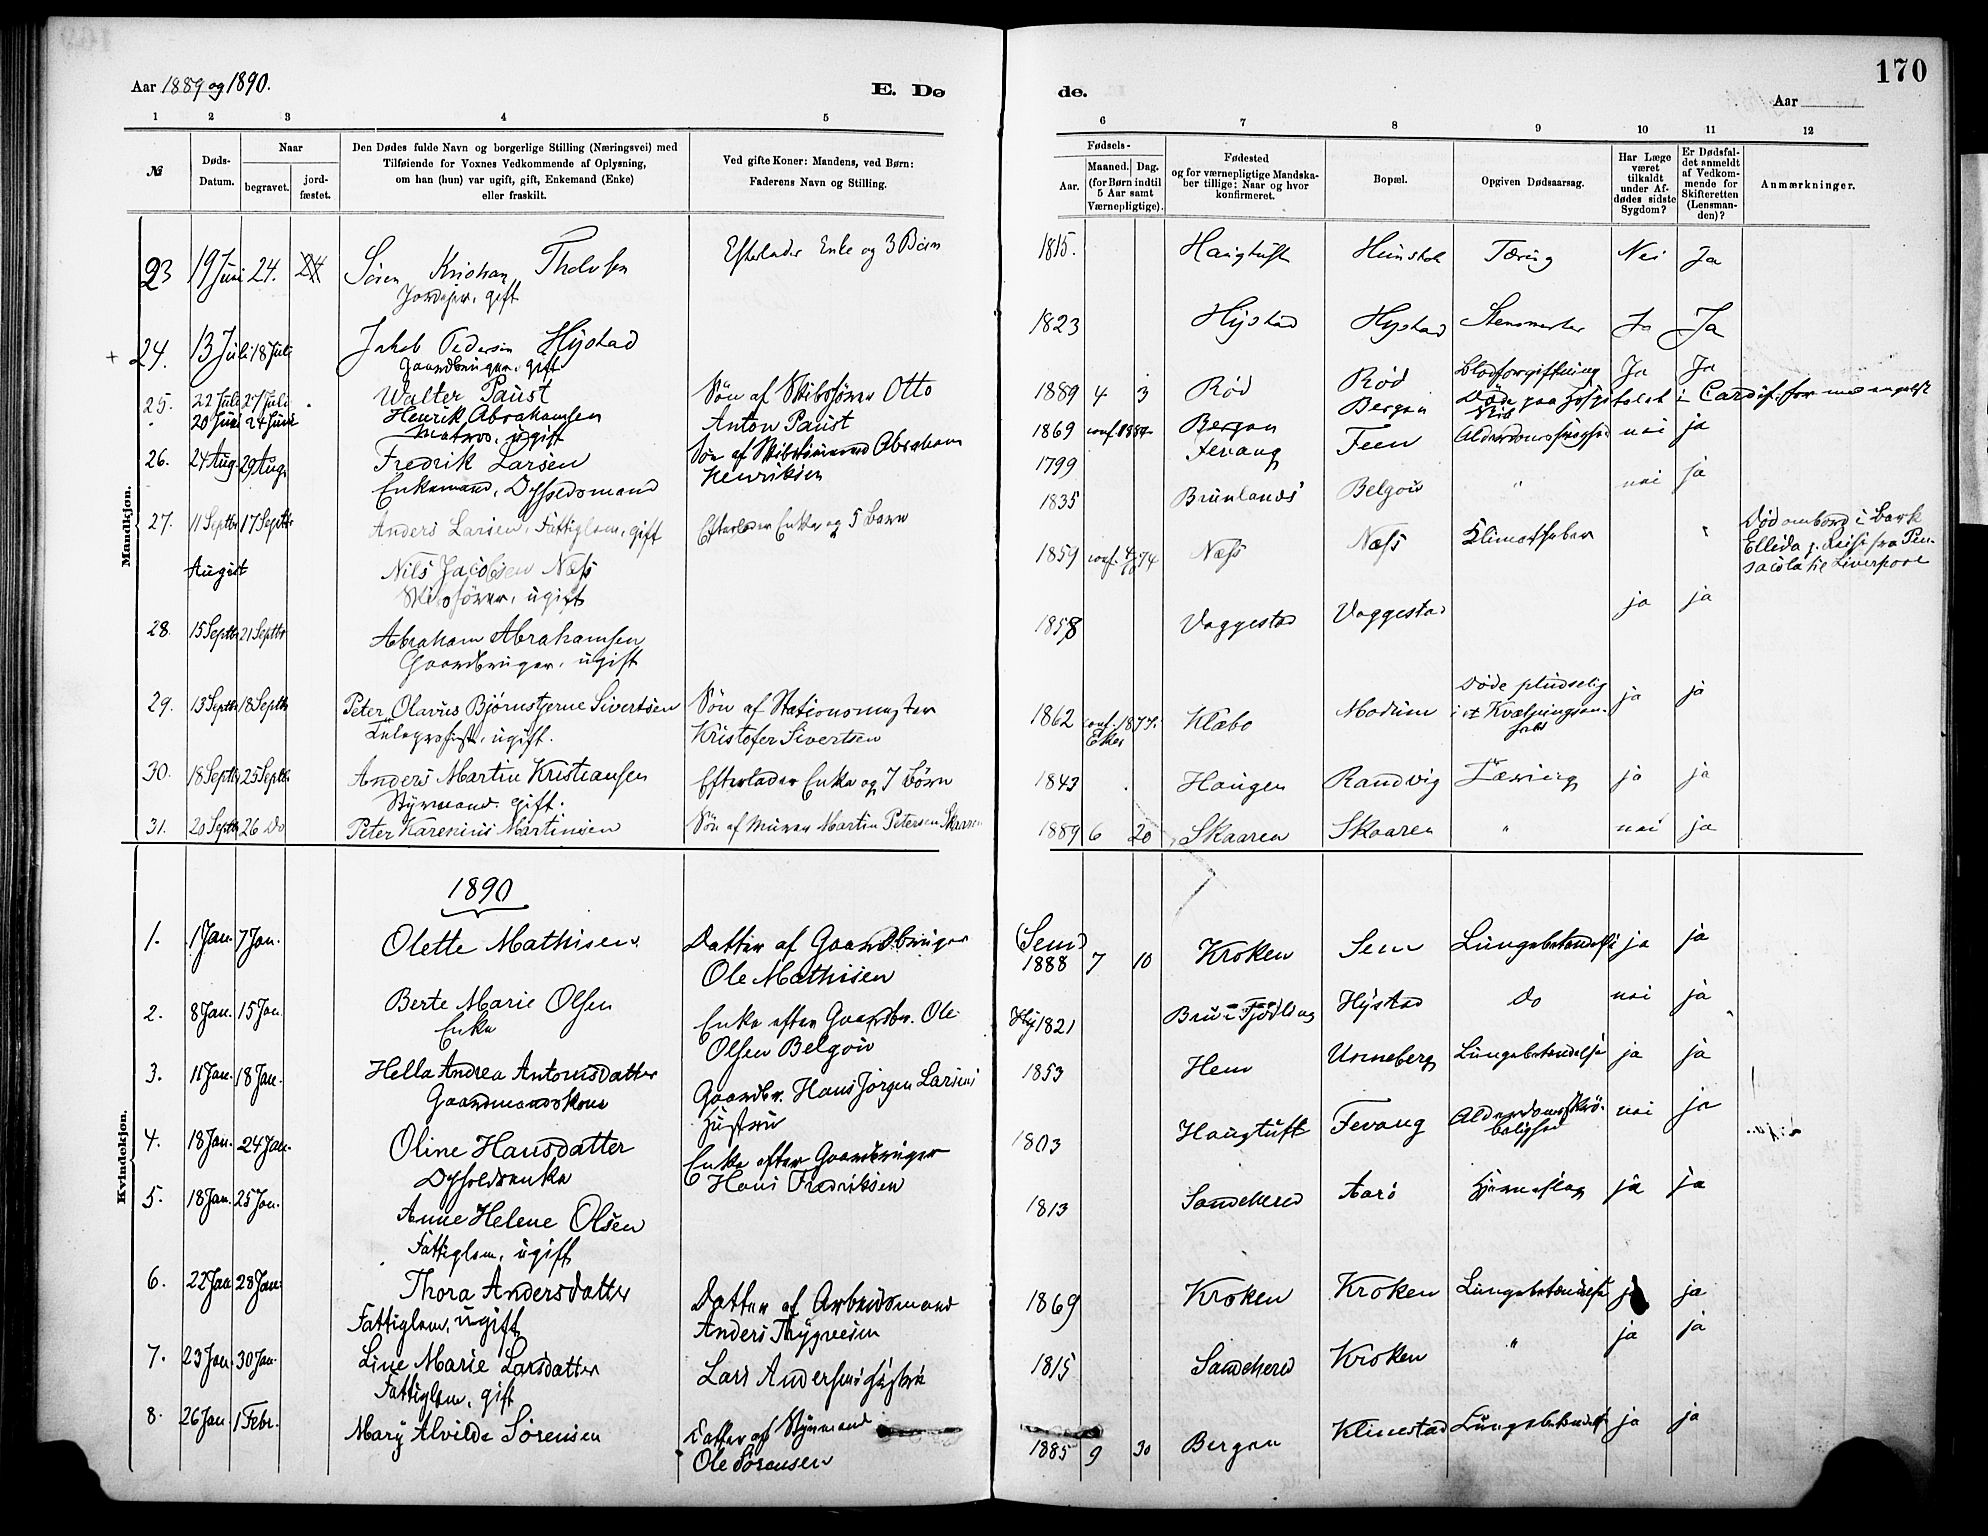 170
Aar 1889 og 1890.
E. Dø
de.
Aar
1 2 3 4 5
6 7 8 9 10 11 12
№
Døds-Datum.
Naar
begravet.
jord-fæstet.
Den Dødes fulde Navn og borgerlige Stilling (Næringsvei) med
Tilføiende for Voxnes Vedkommende af Oplysning,
om han (hun) var ugift, gift, Enkemand (Enke)
eller fraskilt.
Ved gifte Koner: Mandens, ved Børn:
Faderens Navn og Stilling.
Fødsels-
Aar.
Maaned. Dag.
(for Børn indtil
5 Aar samt
Værnepligtige).
Fødested
og for værnepligtige Mandska-
ber tillige: Naar og hvor
konfirmeret.
Bopæl.
Opgiven Dødsaarsag.
Har Læge
været
tilkaldt
under Af-
dødes sidste
Sygdom?
Er Dødsfal-
det anmeldt
af Vedkom-
mende for
Skifteretten
(Lensman-
den)?
Anmærkninger.
Mandkjøn.
23 19 Juni 24. 24 Søren Kristian Tholvsen Efterlader Enke og 3 Børn 1815. Haugtuft Himstok Tæring Nei Ja
Jordejer, gift
24. 13 Juli 18 Juli Jakob Pedersen Hystad 1823 Hystad Hystad Ja Ja
Gaardbruger, gift
25. 22 Juli 27 Juli Walter Paust Søn af Skibsfører Otto 1889 4 3 Rød Rød Blodforgiftning Ja Ja
Anton Paust
20 Juni 24 Juni Henrik Abrahamsen 1869 conf. 1884 Bergan Bergan Døde paa Hospitalet i Cardif. for med engelsk
Skib
Matros, ugift
Søn af Abraham
Henriksen
nei ja
26. 24 Aug. 29 Aug. Fredrik Larsen 1799 Fevang Feen nei ja
Enkemand,
27. 11 Septbr 17 Septbr Anders Larsen, Fattiglem, gift Efterlader Enke og 5 Børn 1835 Brunlanes Belgøw "
August Nils Jacobsen Næss 1859 conf. 74 Næss Næss Klimatfeber "
Skibsfører, ugift
Død ombord i Bark
Ellida p. Reise fra Pen-
sacola til Liverpool
28. 15 Septbr 21 Septbr Abraham Abrahamsen 1858 Vaggestad Vaggestad ja ja
Gaardbruger, ugift
29. 13 Septbr 18 Septbr Peter Olavus Bjørnstjerne Sivertsen Søn af Stationsmester 1862 conf. 1877 i Klæbo Modum Døde pludselig ja ja
Telegrafist, ugift. Kristofer Sivertsen Eker i et Kvælningsan-
30. 18 Septbr 25 Septbr Anders Martin Kristiansen Efterlader Enke og 7 Børn 1843 Haugen Randvig Tæring ja ja
Styrmand. gift.
31. 20 Septbr 26 Do Peter Karenius Martinsen Søn af Murer Martin Petersen Skaaren 1889 6 20 Skaaren Skaaren " nei ja
1890
Kvindekjøn.
1. 1 Jan. 7 Jan. Olette Mathisen Datter af Gaardbruger (Sem) 1888 7 10 Kroken Sem Lungebetændelse ja ja
Ole Mathisen
2. 8 Jan. 15 Jan. Berte Marie Olsen Enke efter Gaardbr. Ole 1821 Bru i Tjødling Hystad Do nei ja
Enke Olsen Belgøw
3. 11 Jan. 18 Jan. Hella Andrea Antonsdatter Gaardbr. Hans Jørgen Larsens 1853 Hem Unneberg Lungebetændelse ja ja
Gaardmandskone Hustru
4. 18 Jan. 24 Jan. Oline Hansdatter Enke efter Gaardbruger 1803 Haugtuft Fevang Alderdomsskrø- nei ja
belighed
Hans Fredriksen
5. 18 Jan. 25 Jan. Anne Helene Olsen 1813 Sandeherd Aarø Hjerneslag ja ja
Fattiglem, ugift
6. 22 Jan 28 Jan. Thora Andersdatter Datter af Arbeidsmand 1869 Kroken Kroken Lungebetændelse ja ja
Fattiglem, ugift Anders Thygvesen
7. 23 Jan. 30 Jan. Line Marie Larsdatter Lars Andersens Hustru 1815 Sandeherd Kroken " ja ja
Fattiglem, gift
8. 26 Jan. 1 Febr. Mary Alvilde Sørensen Datter af Styrmand 1885 9 30 Bergan Klinestad Lungebetændelse ja ja
Ole Sørensen